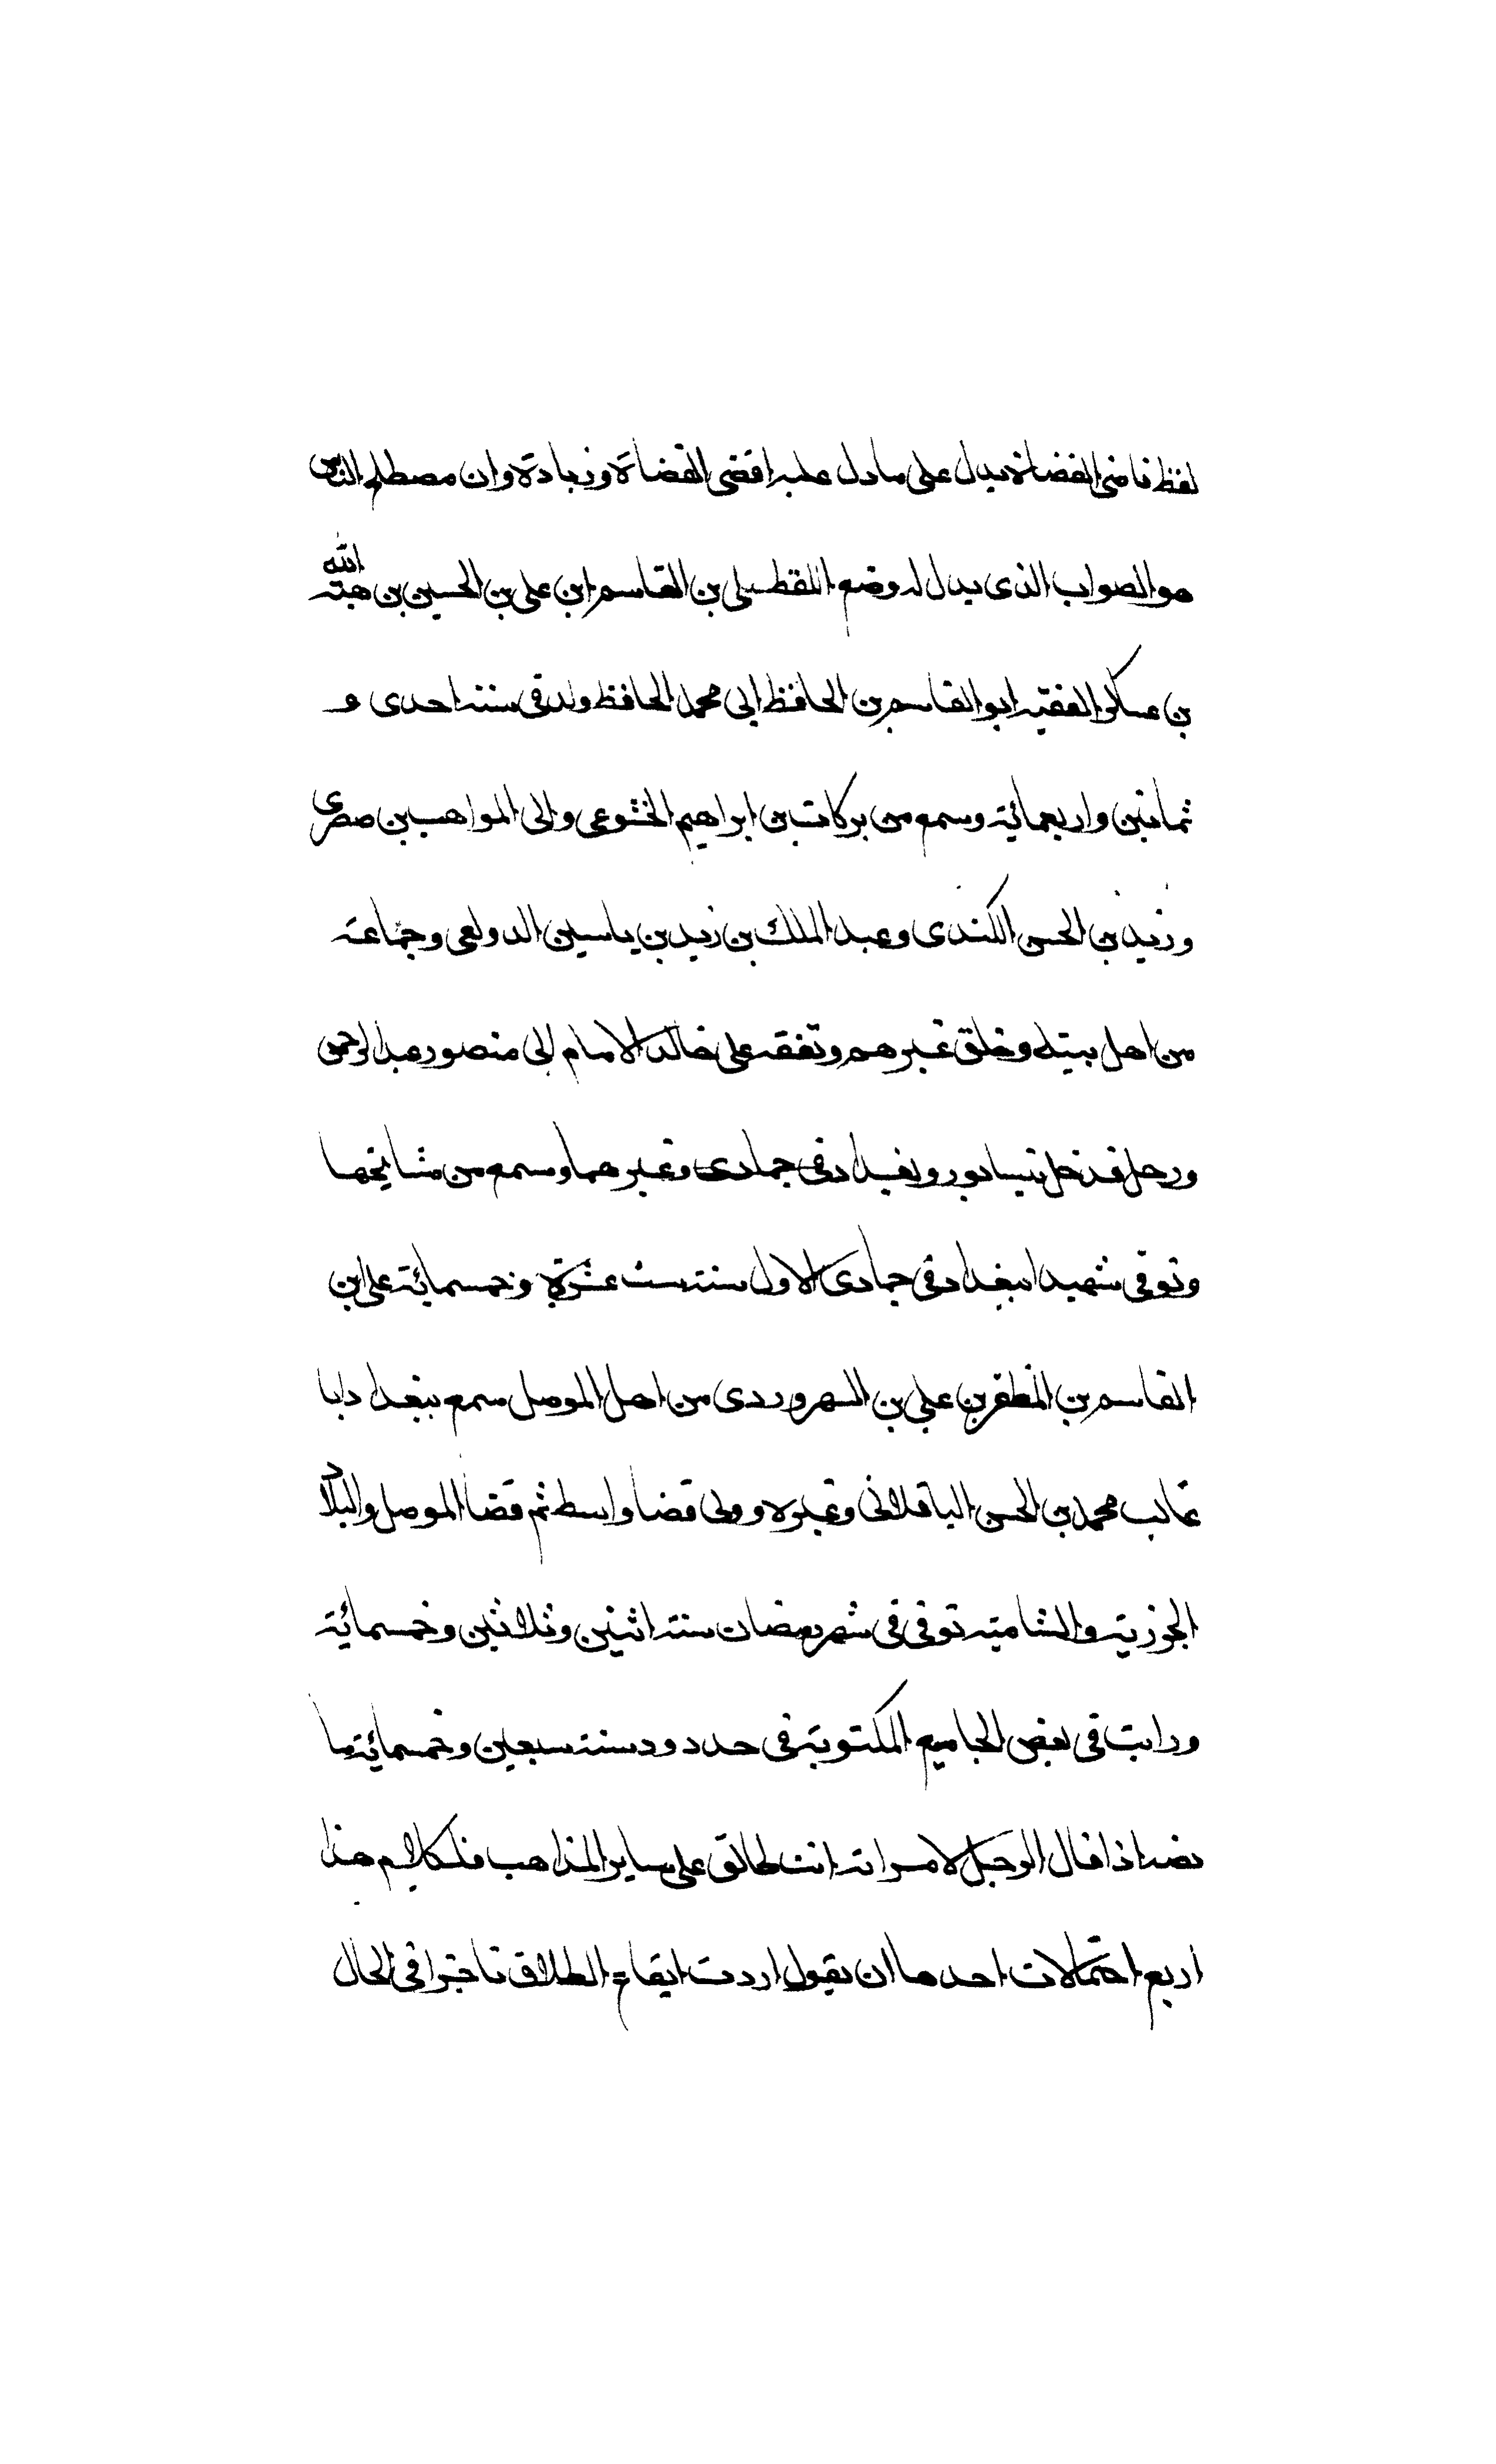 لفظ قاضى القضاة يدل على ما دل عليه اقضى القضاة وزيادة وان مصطلح الناس
هو الصواب الذى يدل له وضع اللفظ على بن القاسم ابن على بن الحسين بن هبة الله
بن عساكر الفقيه ابو القاسم بن الحافظ ابى محمد الحافظ ولد فى سنة احدى و
ثمانين واربعمائة وسمع من بركات بن ابراهيم الخشوعى والى المواهب بن صصرى
وزيد بن الحسن الكندى وعبد الملك بن زيد بن ياسين الدولعى وجماعة
من اهل بيته وخلق غيرهم وتفقه على خاله الامام ابى منصور عبد الرحمن
ورحل فدخل نيسابور وبغداد فى جمادى وغيرهما وسمع من مشايخها
وتوفى شهيدا ببغداد فى جمادى الاول سنة ست عشرة وخمسمائة على ابن
القاسم بن المظفر بن على بن السهروردى من اهل الموصل سمع ببغداد ابا
غالب محمد بن الحسن الباقلانى وغيره وولى قضا واسط ثم قضا الموصل والبلاد
الجزرية والشامية توفى فى شهر رمضان سنة اثنين وثلاثين وخمسمائة
ورايت فى بعض المجاميع المكتوبة فى حدود سنة سبعين وخمسمائة ما
نصه اذا قال الرجل لامراته انت طالق على ساير المذاهب فلكلام هذا
اربع احتمالات احدها ان يقول اردت ايقاع الطلاق ناجزا فى الحال